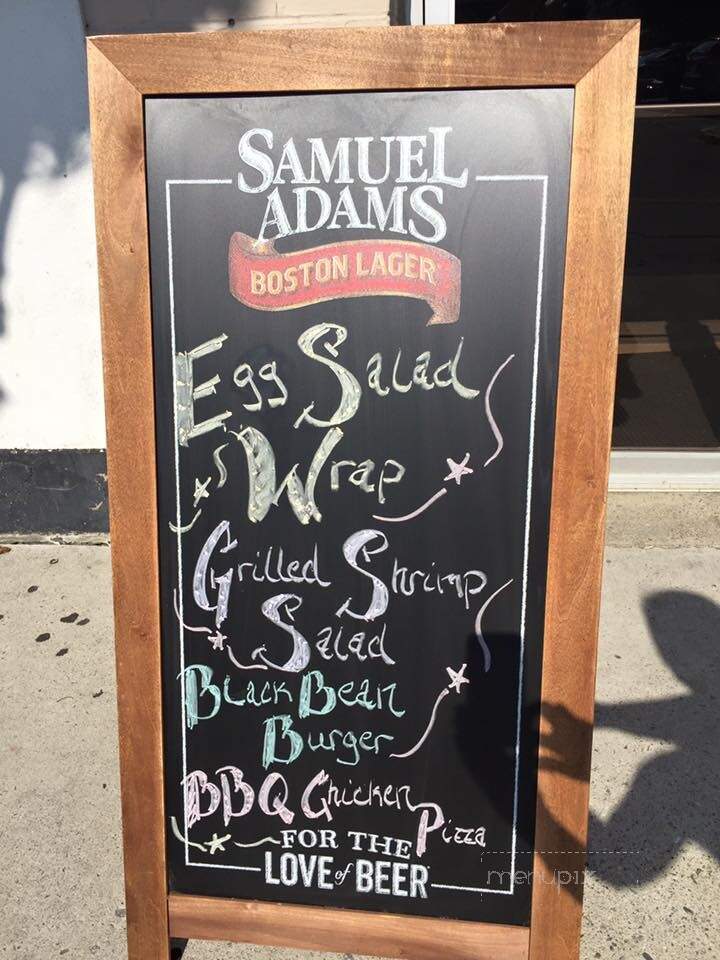 SAMUEL
ADAMS
BOSTON LAGER
Egg Salad
Wrap
Grilled Shrimp
Salad
Black Bean
Burger
BBQ Chicken
Pizza
FOR THE
LOVE of BEER
menupix